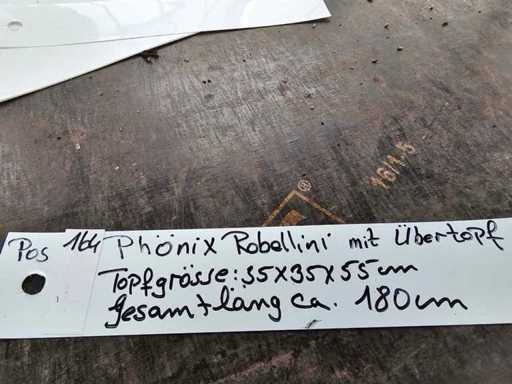 Pos 164 Phönix Robellini mit Übertopf
Topfgrösse: 35x35x55cm
Gesamtläng ca. 180cm
16/1-5
®